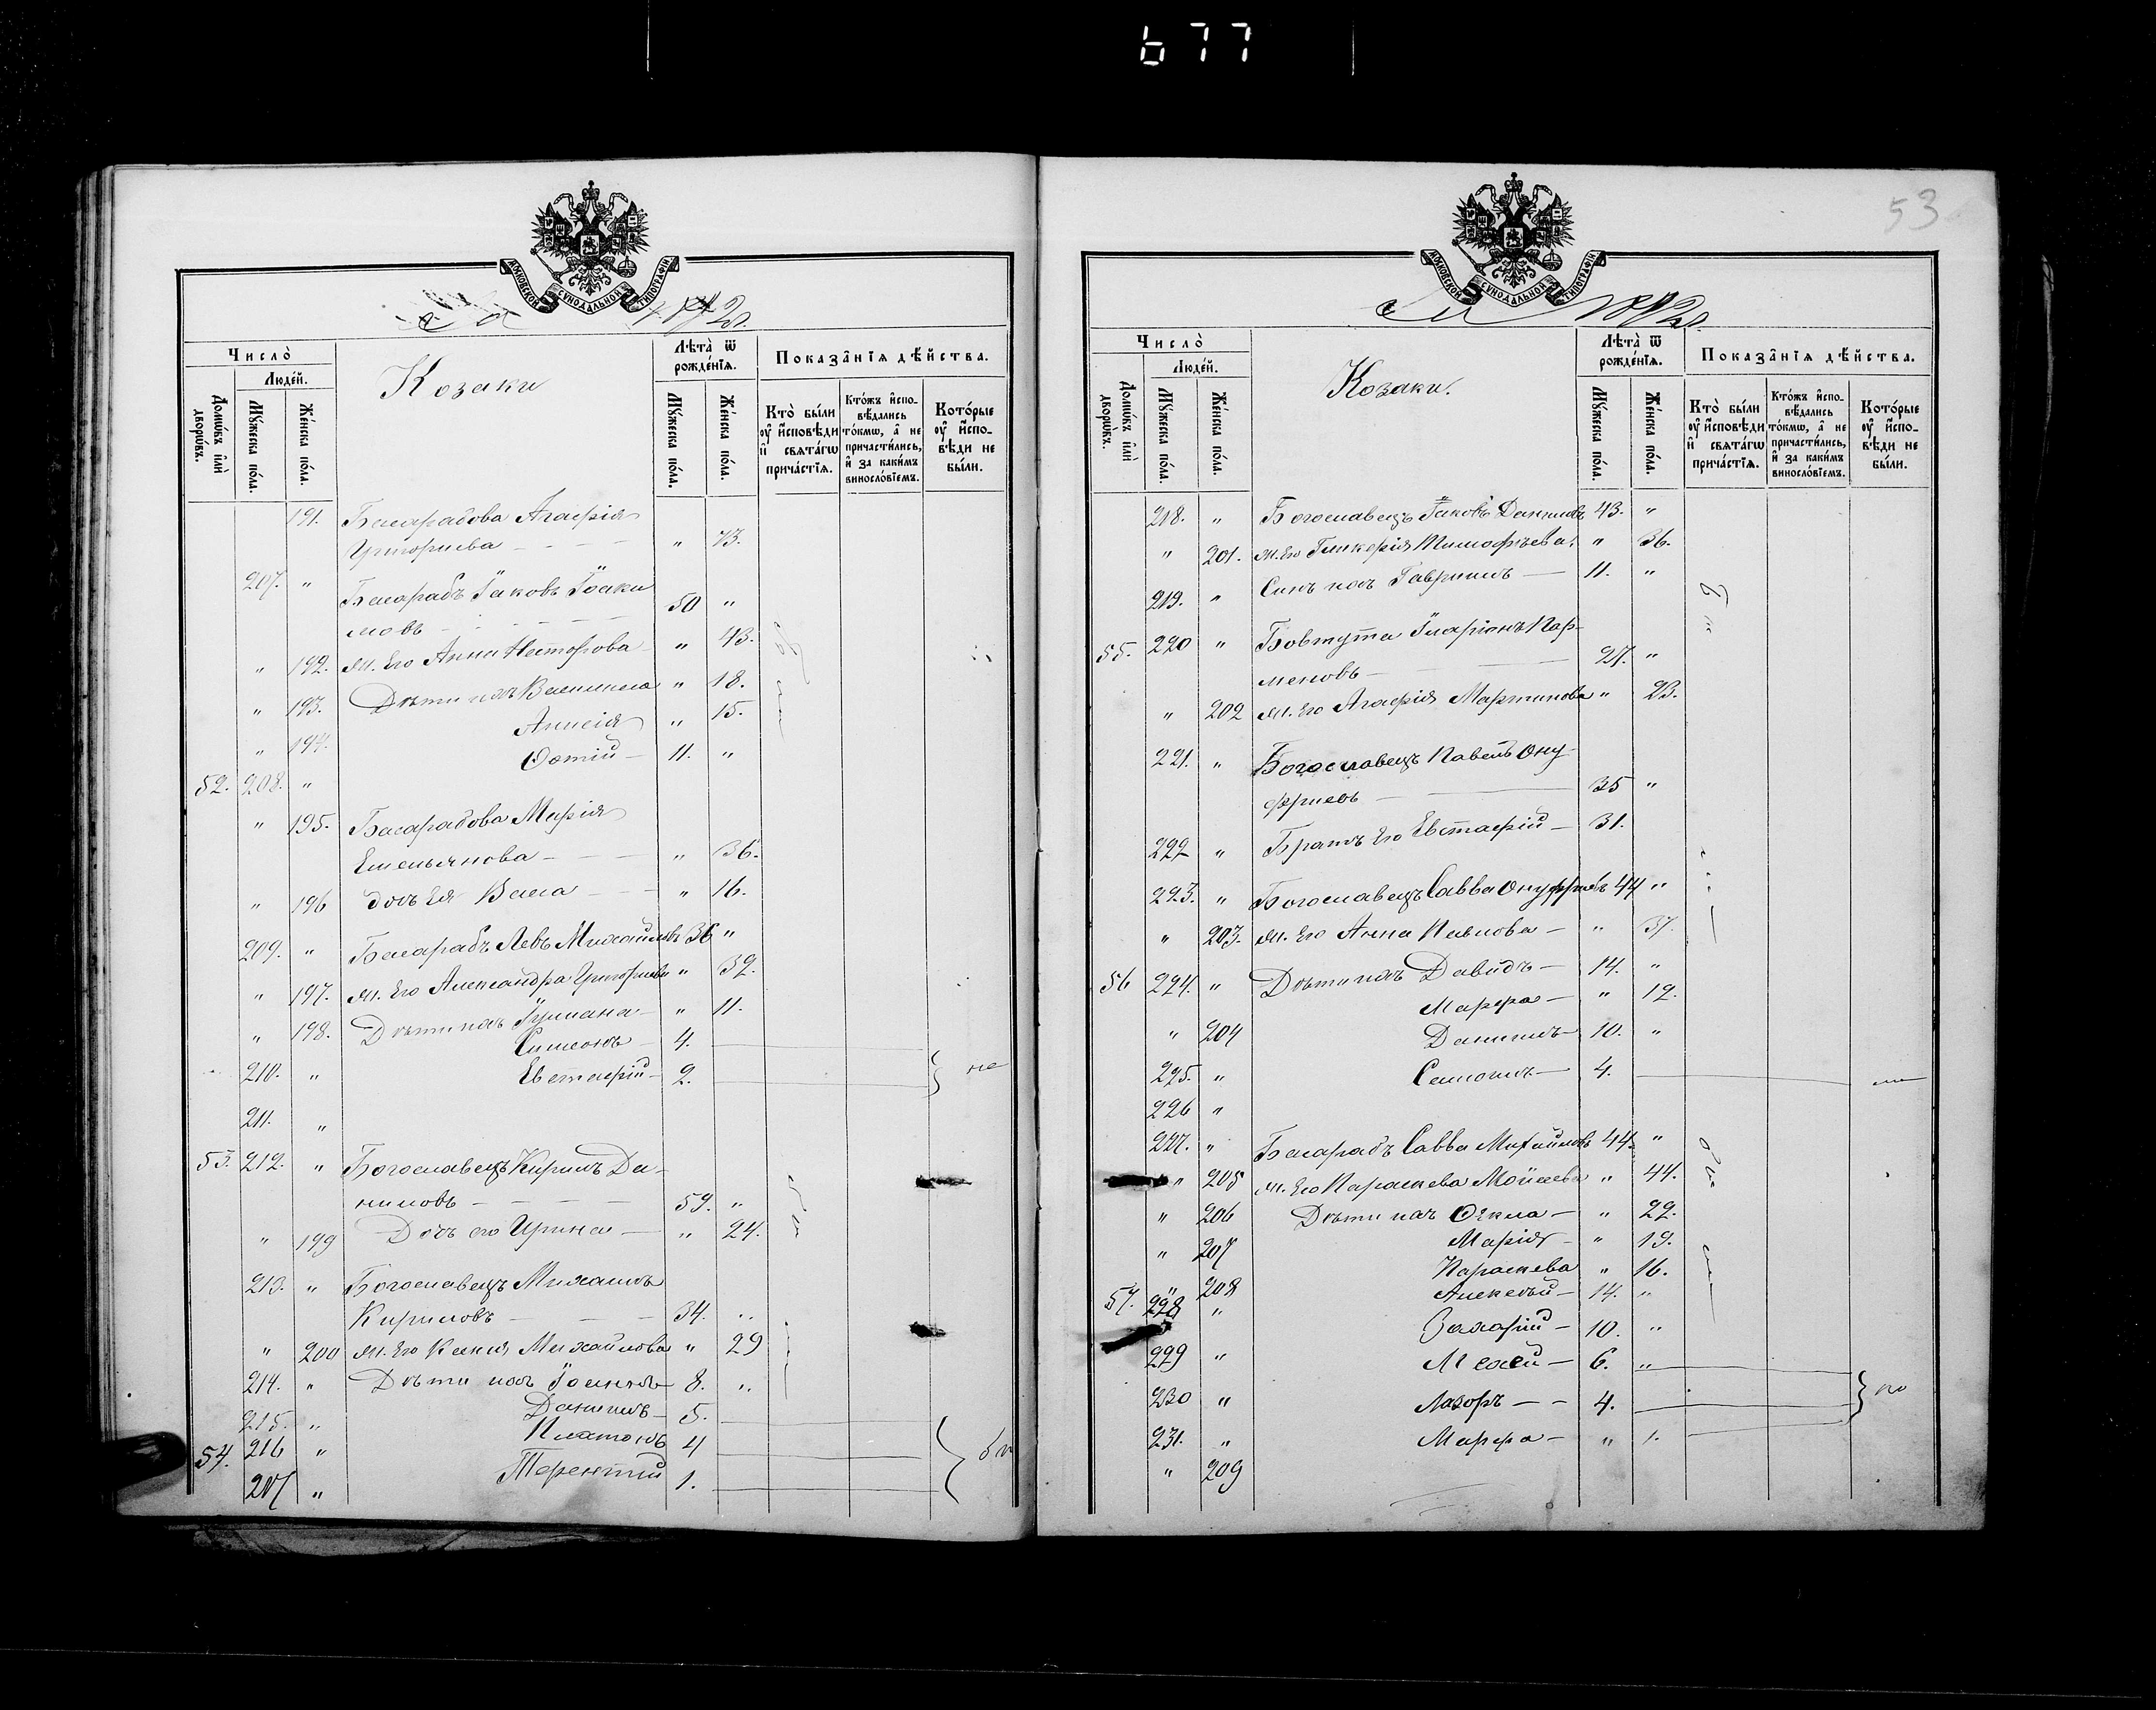 677
МОСКОВСКОЙ СУНОДАЛЬНОЙ ТИПОГРАФІИ
Число̀
Людей.
Домѡвъ и҆лѝ дворѡвъ.
Мꙋжеска по́ла.
Же́нска по́ла.
Козаки
Лѣта̀ ѿ рожде́нїѧ.
Мꙋжеска по́ла.
Же́нска по́ла.
Показа̑нїѧ дѣ́йства.
Кто̀ бы́ли ᲂу҆ и҆сповѣди и҆ свѧта́гѡ прича́стїѧ.
Кто́жъ и҆сповѣ́дались то́кмѡ, а҆ не причасти́лись, и҆ за каки́мъ винослові́емъ.
Кото́рые ᲂу҆ и҆сповѣ́ди не бы́ли.
191. Басарабова Агафія
Григориева - - - " 73.
207. " Басарабъ Іаковъ Іоаки
мовъ - - - 50 "
" 192. ж. Его Анна Несторова " 43.
" 193. Дѣти ихъ Василиса " 18.
" 194. Анисія " 15.
52. 208. " Фотій - 11. "
" 195. Басарабова Марія
Емельянова - - " 36.
" 196 дочь Ея Васса - - " 16.
209. " Басарабъ Левъ Михайловъ 36 "
" 197. ж. Его Александра Григориева " 32.
" 198. Дѣти ихъ Іуліана - " 11.
210. " Симеонъ - 4.
211. " Евстафій - 2. не
53. 212. " Богославецъ Кирилъ Да-
ниловъ - - - 59. "
" 199 Дочь его Ирина - " 24.
213. " Богославецъ Михаилъ
Кириловъ - - - 34. "
" 200 ж. Его Ксенія Михайлова " 29
214. " Дѣти ихъ Іоаннъ 8. "
215. " Даниилъ - 5.
54. 216 " Платонъ 4
217 " Терентій 1.
53
МОСКОВСКОЙ СУНОДАЛЬНОЙ ТИПОГРАФІИ
Число̀
Людей.
Домѡвъ и҆лѝ дворѡвъ.
Мꙋжеска по́ла.
Же́нска по́ла.
Козаки.
Лѣта̀ ѿ рожде́нїѧ.
Мꙋжеска по́ла.
Же́нска по́ла.
Показа̑нїѧ дѣ́йства.
Кто̀ бы́ли ᲂу҆ и҆сповѣди и҆ свѧта́гѡ прича́стїѧ.
Кто́жъ и҆сповѣ́дались то́кмѡ, а҆ не причасти́лись, и҆ за каки́мъ винослові́емъ.
Кото́рые ᲂу҆ и҆сповѣ́ди не бы́ли.
218. " Богославецъ Іаковъ Даниловъ 43. "
" 201. ж. Его Гликерія Тимофѣева. " 36.
219. " Синъ ихъ Гавриилъ - 11. "
55. 220 " Бовтута Иларіонъ Пар-
меновъ - - 27. "
" 202 ж. Его Агафія Мартинова " 23.
221. " Богославецъ Павелъ Ону
фриевъ - - 35 "
222 " Братъ Его Евстафій - 31.
223. " Богославецъ Савва Онуфриевъ 44 "
" 203. ж. Его Анна Павлова - " 37.
56 224. " Дѣти ихъ Давидъ - 14. "
" 204 Марфа - " 12.
225. " Даниилъ - 10. "
226 " Самоилъ - 4.
227. " Басарабъ Савва Михайловъ 44. "
" 205 ж. Его Параскева Мойсеева " 44.
" 206 Дѣти ихъ Ѳекла - " 22.
" 207 Марія - " 19.
" 208 Параскева " 16.
57. 228 " Алексѣй - 14. "
229 " Захарій - 10. "
230 " 6. "
231. " Лазоръ - - 4.
" 209 Марфа - " 1.